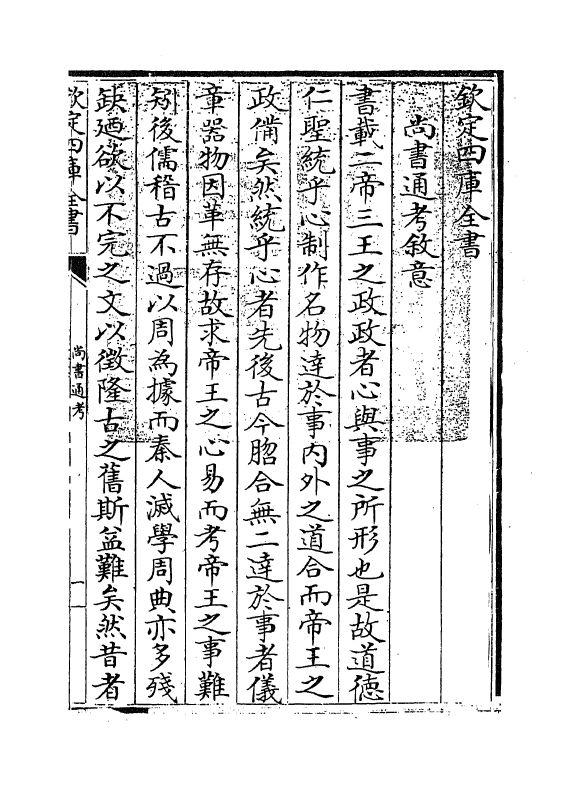 欽定四庫全書
尚書通考敘意
書載二帝三王之政政者心與事之所形也是故道徳
仁聖統乎心制作名物達於事內外之道合而帝王之
政備矣然統乎心者先後古今脗合無二達於事者儀
章器物因革無存故求帝王之心易而考帝王之事難
矧後儒稽古不過以周為據而秦人滅學周典亦多殘
缺廼欲以不完之文以徴隆古之舊斯益難矣然昔者
欽定四庫全書
尚書通考
一